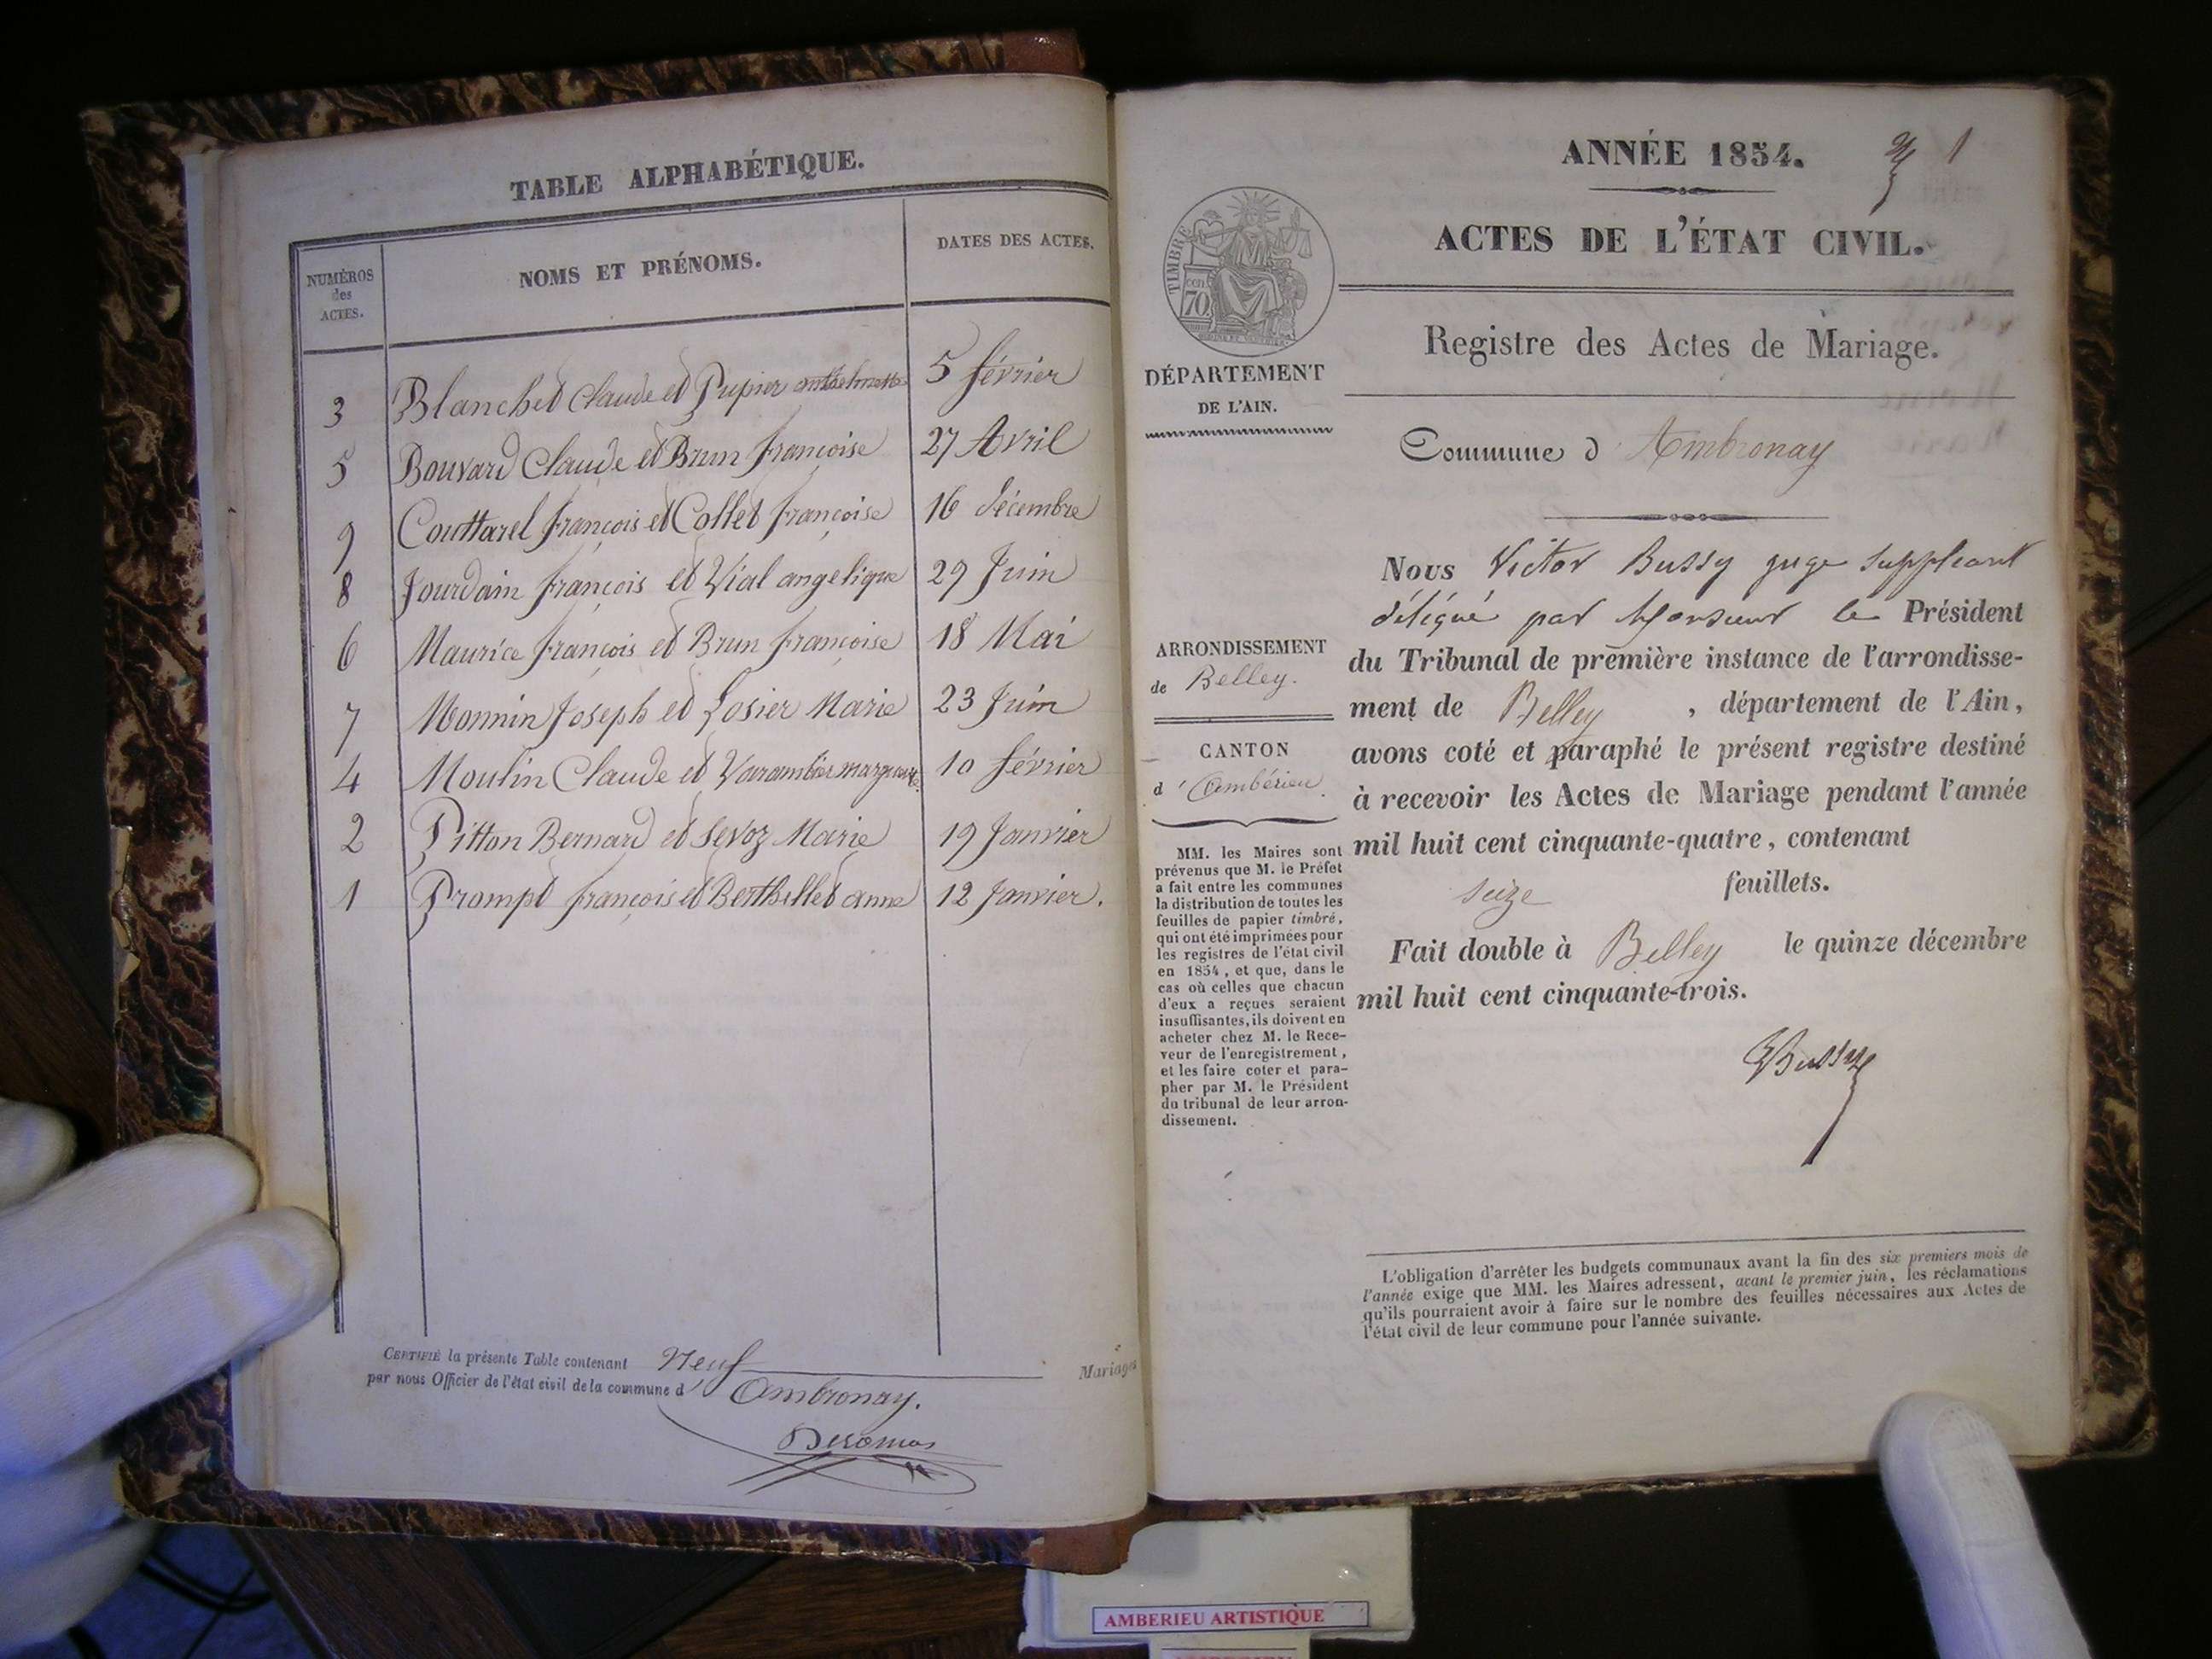 TABLE ALPHABÉTIQUE.
NUMÉROS
des
ACTES.
NOMS ET PRÉNOMS.
DATES DES ACTES.
3 Blanchet Claude et Pupier anthelmette 5 février
5 Bouvard Claude et Brun françoise 27 Avril
9 Couttarel françois et Collet françoise 16 décembre
8 Jourdain françois et Vial angelique 29 Juin
6 Maurice françois et Brun françoise 18 Mai
7 Monnin Joseph et Losier Marie 23 Juin
4 Moulin Claude et 10 février
2 Pitton Bernard et Sevoz Marie 19 Janvier
1 Prompt françois et Berthillet anne 12 Janvier.
CERTIFIÉ la présente Table contenant Neuf Mariages
par nous Officier de l'état civil de la commune d' Ambronay.
ANNÉE 1854.
1
ACTES DE L'ÉTAT CIVIL.
TIMBRE
cen.
70.
Registre des Actes de Mariage.
DÉPARTEMENT
DE L'AIN.
Commune d' Ambronay
ARRONDISSEMENT
de Belley.
CANTON
d' Ambérieu.
MM. les Maires sont
prévenus que M. le Préfet
a fait entre les communes
la distribution de toutes les
feuilles de papier timbré,
qui ont été imprimées pour
les registres de l'état civil
en 1854, et que, dans le
cas où celles que chacun
d'eux a reçues seraient
insuffisantes, ils doivent en
acheter chez M. le Rece-
veur de l'enregistrement,
et les faire coter et para-
pher par M. le Président
du tribunal de leur arron-
dissement.
Nous Victor Bussy juge suppléant
délégué par Monsieur le Président
du Tribunal de première instance de l'arrondisse-
ment de Belley, département de l'Ain,
avons coté et paraphé le présent registre destiné
à recevoir les Actes de Mariage pendant l'année
mil huit cent cinquante-quatre, contenant
seize feuillets.
Fait double à Belley le quinze décembre
mil huit cent cinquante-trois.
VBussy
L'obligation d'arrêter les budgets communaux avant la fin des six premiers mois de
l'année exige que MM. les Maires adressent, avant le premier juin, les réclamations
qu'ils pourraient avoir à faire sur le nombre des feuilles nécessaires aux Actes de
l'état civil de leur commune pour l'année suivante.
AMBERIEU ARTISTIQUE